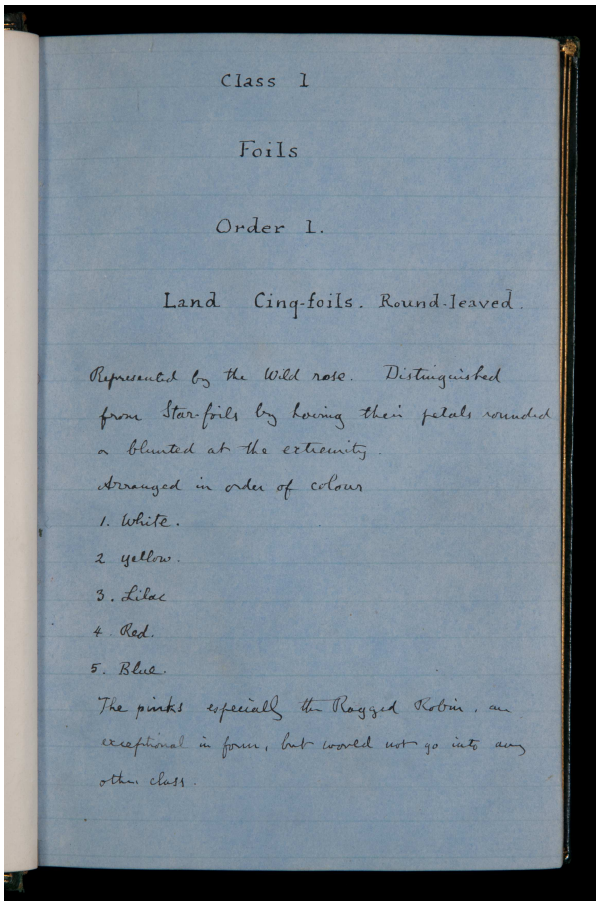 Class 1
Foils
Order 1.
Land Cinq-foils. Round-leaved.
Represented by the Wild rose. Distinguished
from Star-foils by having their petals rounded
or blunted at the extremity.
Arranged in order of colour
1. White.
2 yellow.
3. Lilac
4 Red.
5. Blue.
The pinks especially the Ragged Robin, are
exceptional in form, but would not go into any
other class.